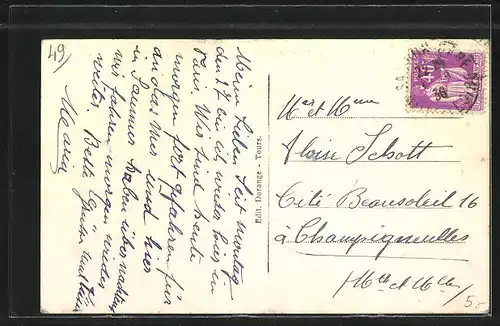 49
Meine Lieben Seit Montag
den 17 bin ich wieder
Paris. Wir sind heute
morgen fortgefahren für
an das Mer und hier
in Saumur haben übernachtet
wir fahren morgen wieder
weiter. Beste Grüsse
Maria
Edit. Dorange - Tours.
POSTES
40
38
Mr et Mme
Aloise Schott
Cité Beausoleil 16
à Champigneulles
Mth et Mlle
5.-